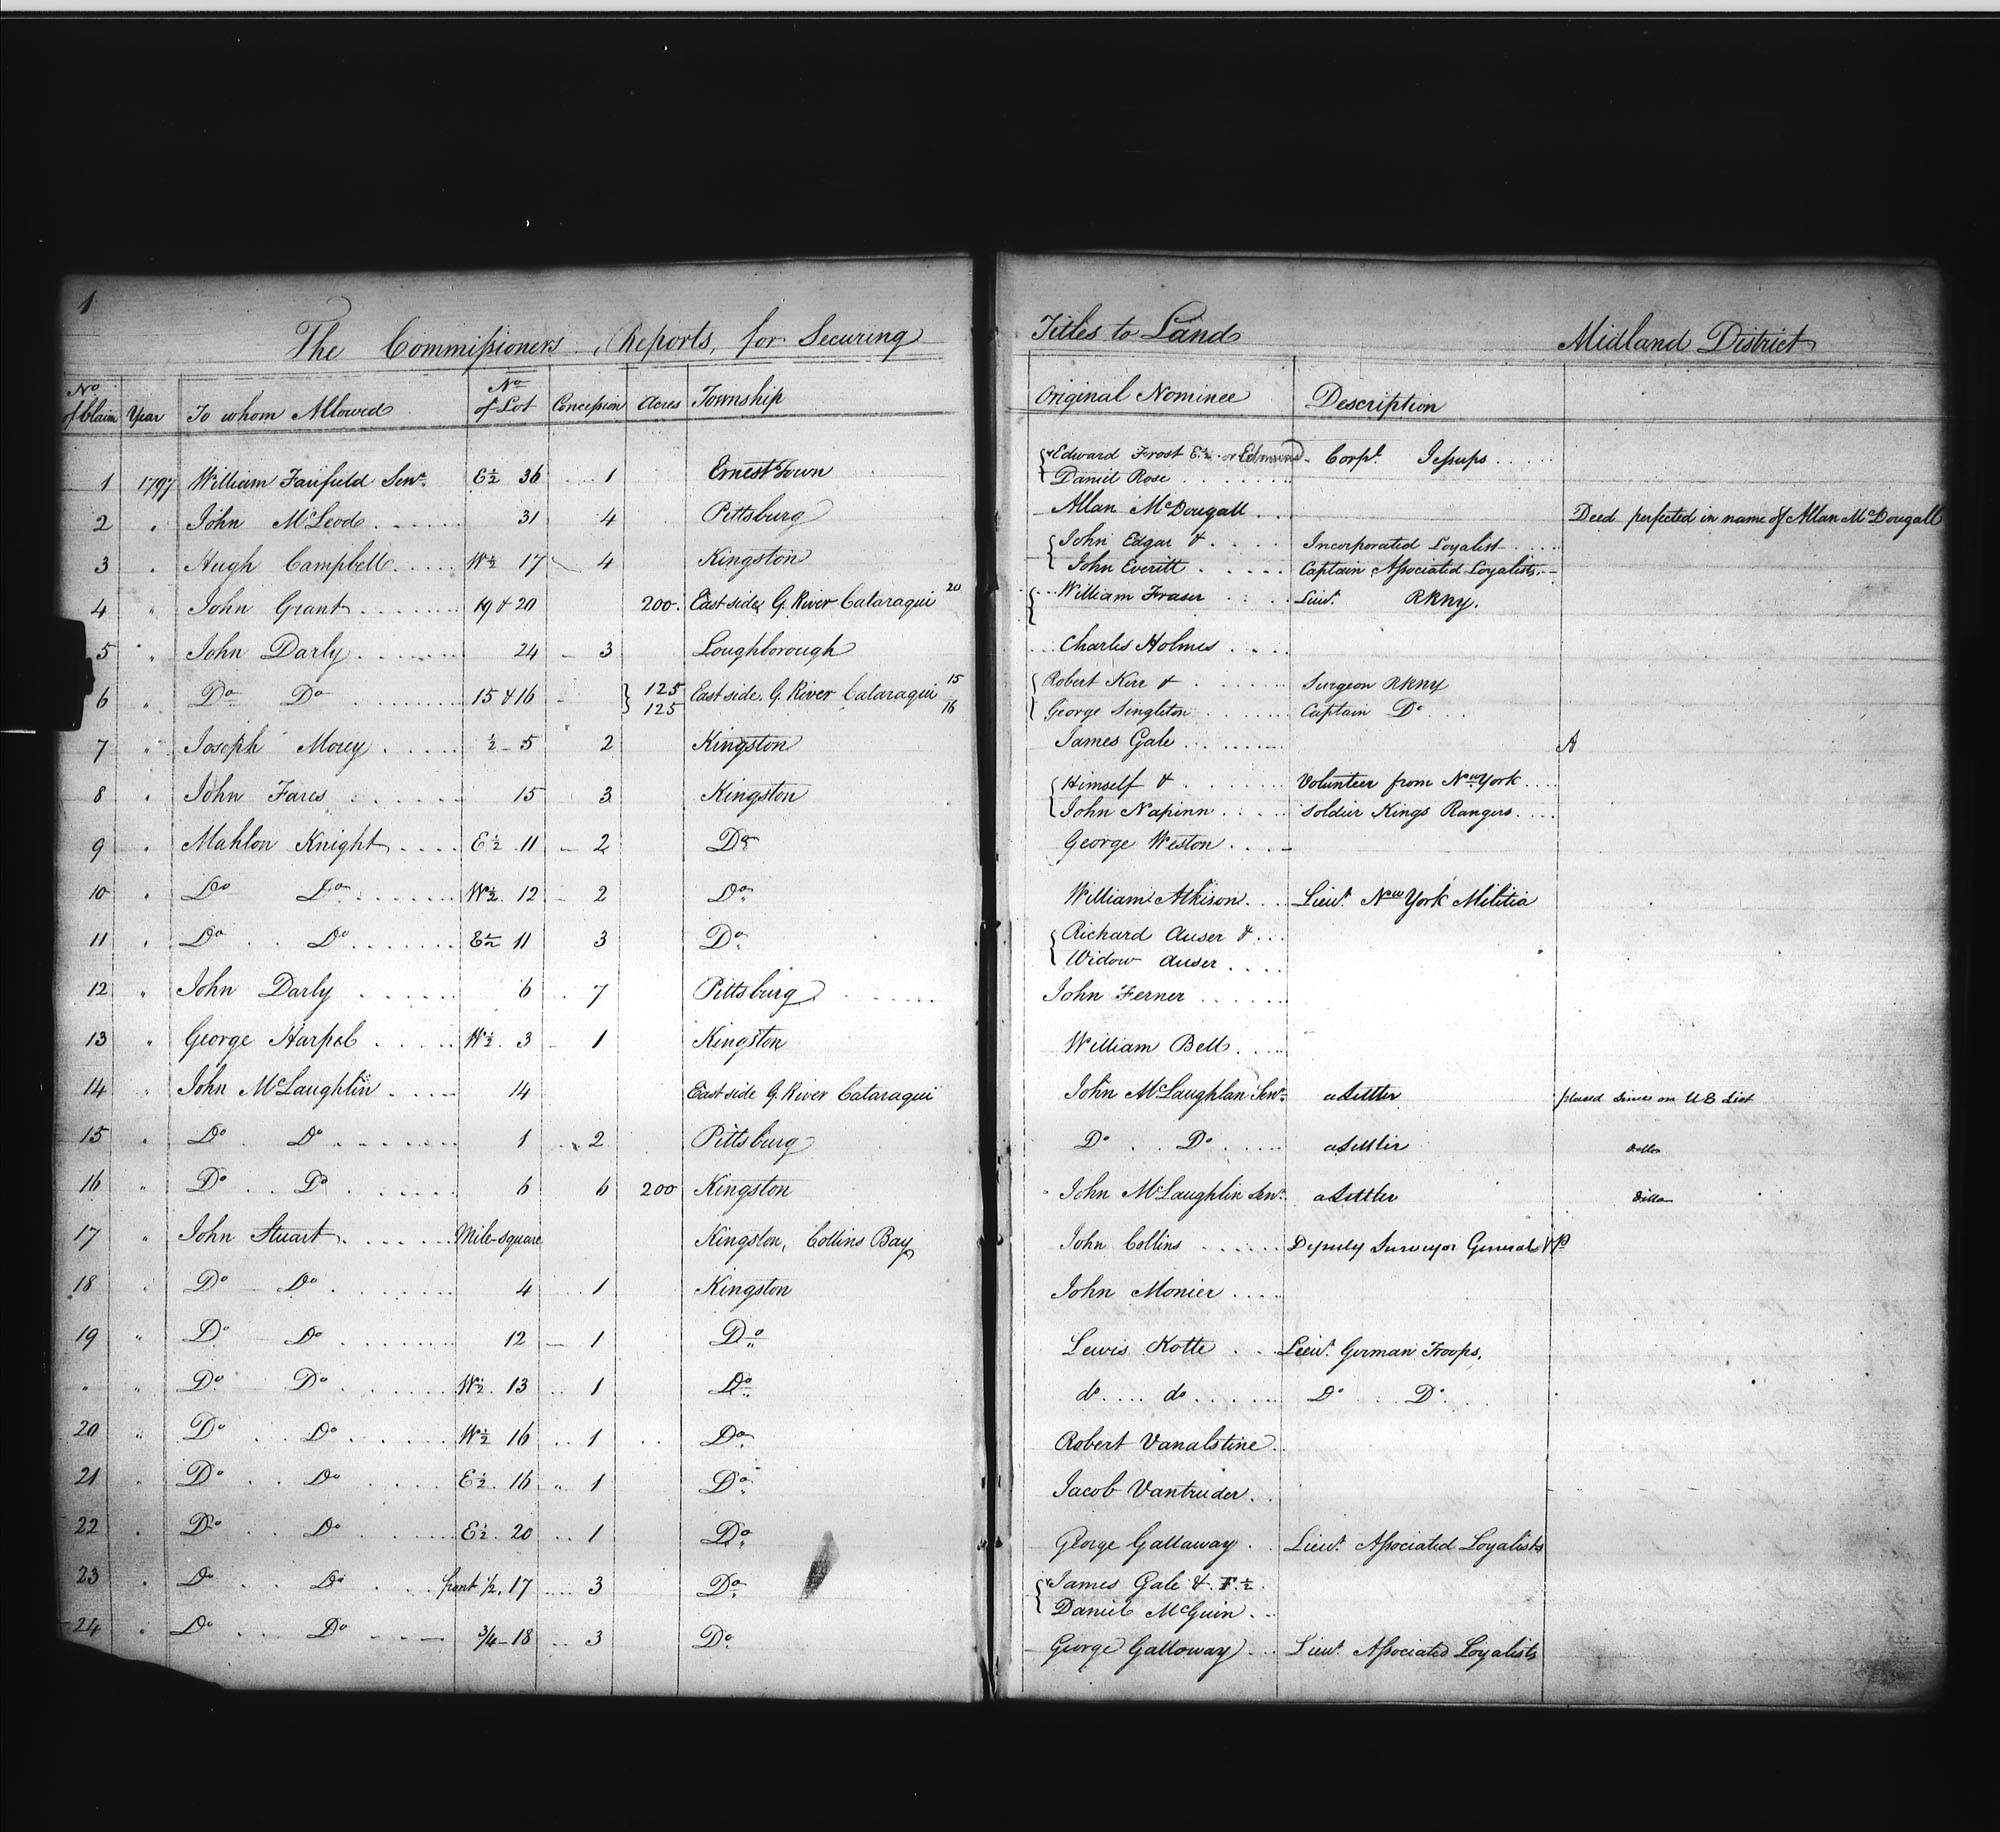 1
The Commissioners Reports, for Securing Titles to Land Midland District
No of Claim Year To whom Allowed No of Lot Concession Acres Township Original Nominee Description
1 1797 William Fairfield Senr. E½ 36 1 Ernest Town { Edward Frost E½ or Edmund Corpl. Jessups
Daniel Rose
2 " John McLeod 31 4 Pittsburg Allan McDougall Deed perfected in name of Allan McDougall
3 " Hugh Campbell W½ 17 4 Kingston { John Edgar & Incorporated Loyalist
John Everitt Captain Associated Loyalists
4 " John Grant 19 & 20 200 East side G. River Cataraqui 20 { William Fraser Lieut. RRNY.
5 " John Darly 24 3 Loughborough Charles Holmes
6 " Do Do 15 & 16 } 125 East side G. River Cataraqui 15 { Robert Kerr & Surgeon RRNY
125 16 George Singleton Captain Do
7 " Joseph Morey ½ 5 2 Kingston James Gale A
8 " John Fares 15 3 Kingston { Himself & Volunteer from New York
John Napinn Soldier Kings Rangers
9 " Mahlon Knight E½ 11 2 Do George Weston
10 " Do Do W½ 12 2 Do William Atkison Lieut. New York Militia
11 " Do Do E½ 11 3 Do { Richard Auser &
Widow Auser
12 " John Darly 6 7 Pittsburg John Ferner
13 " George Harpel W½ 3 1 Kingston William Bell
14 " John McLaughlin 14 East side G River Cataraqui John McLaughlan Senr. a Settler placed since on UE List
15 " Do Do 1 2 Pittsburg Do Do a Settler ditto
16 " Do Do 6 6 200 Kingston John McLaughlin Senr. a Settler Ditto
17 " John Stuart Mile-square Kingston, Collins Bay John Collins Deputy Surveyor General
18 " Do Do 4 1 Kingston John Monier
19 " Do Do 12 1 Do Lewis Kotte Lieut. German Troops.
" " Do Do W½ 13 1 Do do do Do Do
20 " Do Do W½ 16 1 Do Robert Vanalstine
21 " Do Do E½ 16 1 Do Jacob Vantruder
22 " Do Do E½ 20 1 Do George Gallaway Lieut. Associated Loyalists
23 " Do Do front ½ 17 3 Do { James Gale & F ½
Daniel McGuin
24 " Do Do ¾ 18 3 Do George Galloway Lieut. Associated Loyalists